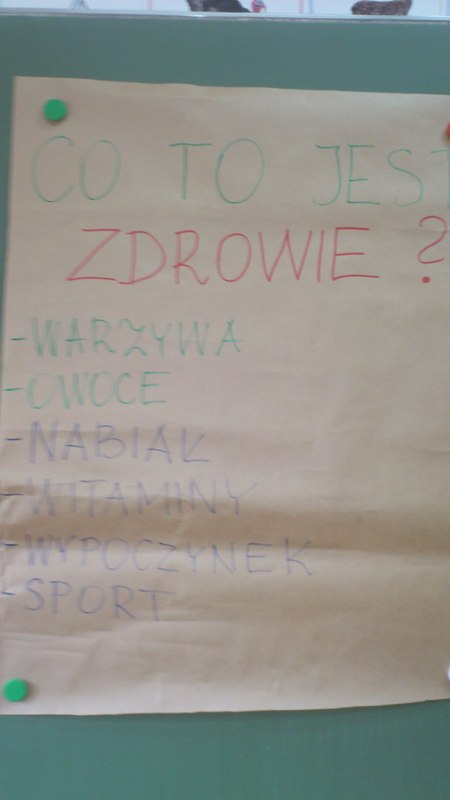 CO TO JEST
ZDROWIE ?
-WARZYWA
-OWOCE
-NABIAŁ
-WITAMINY
-WYPOCZYNEK
-SPORT